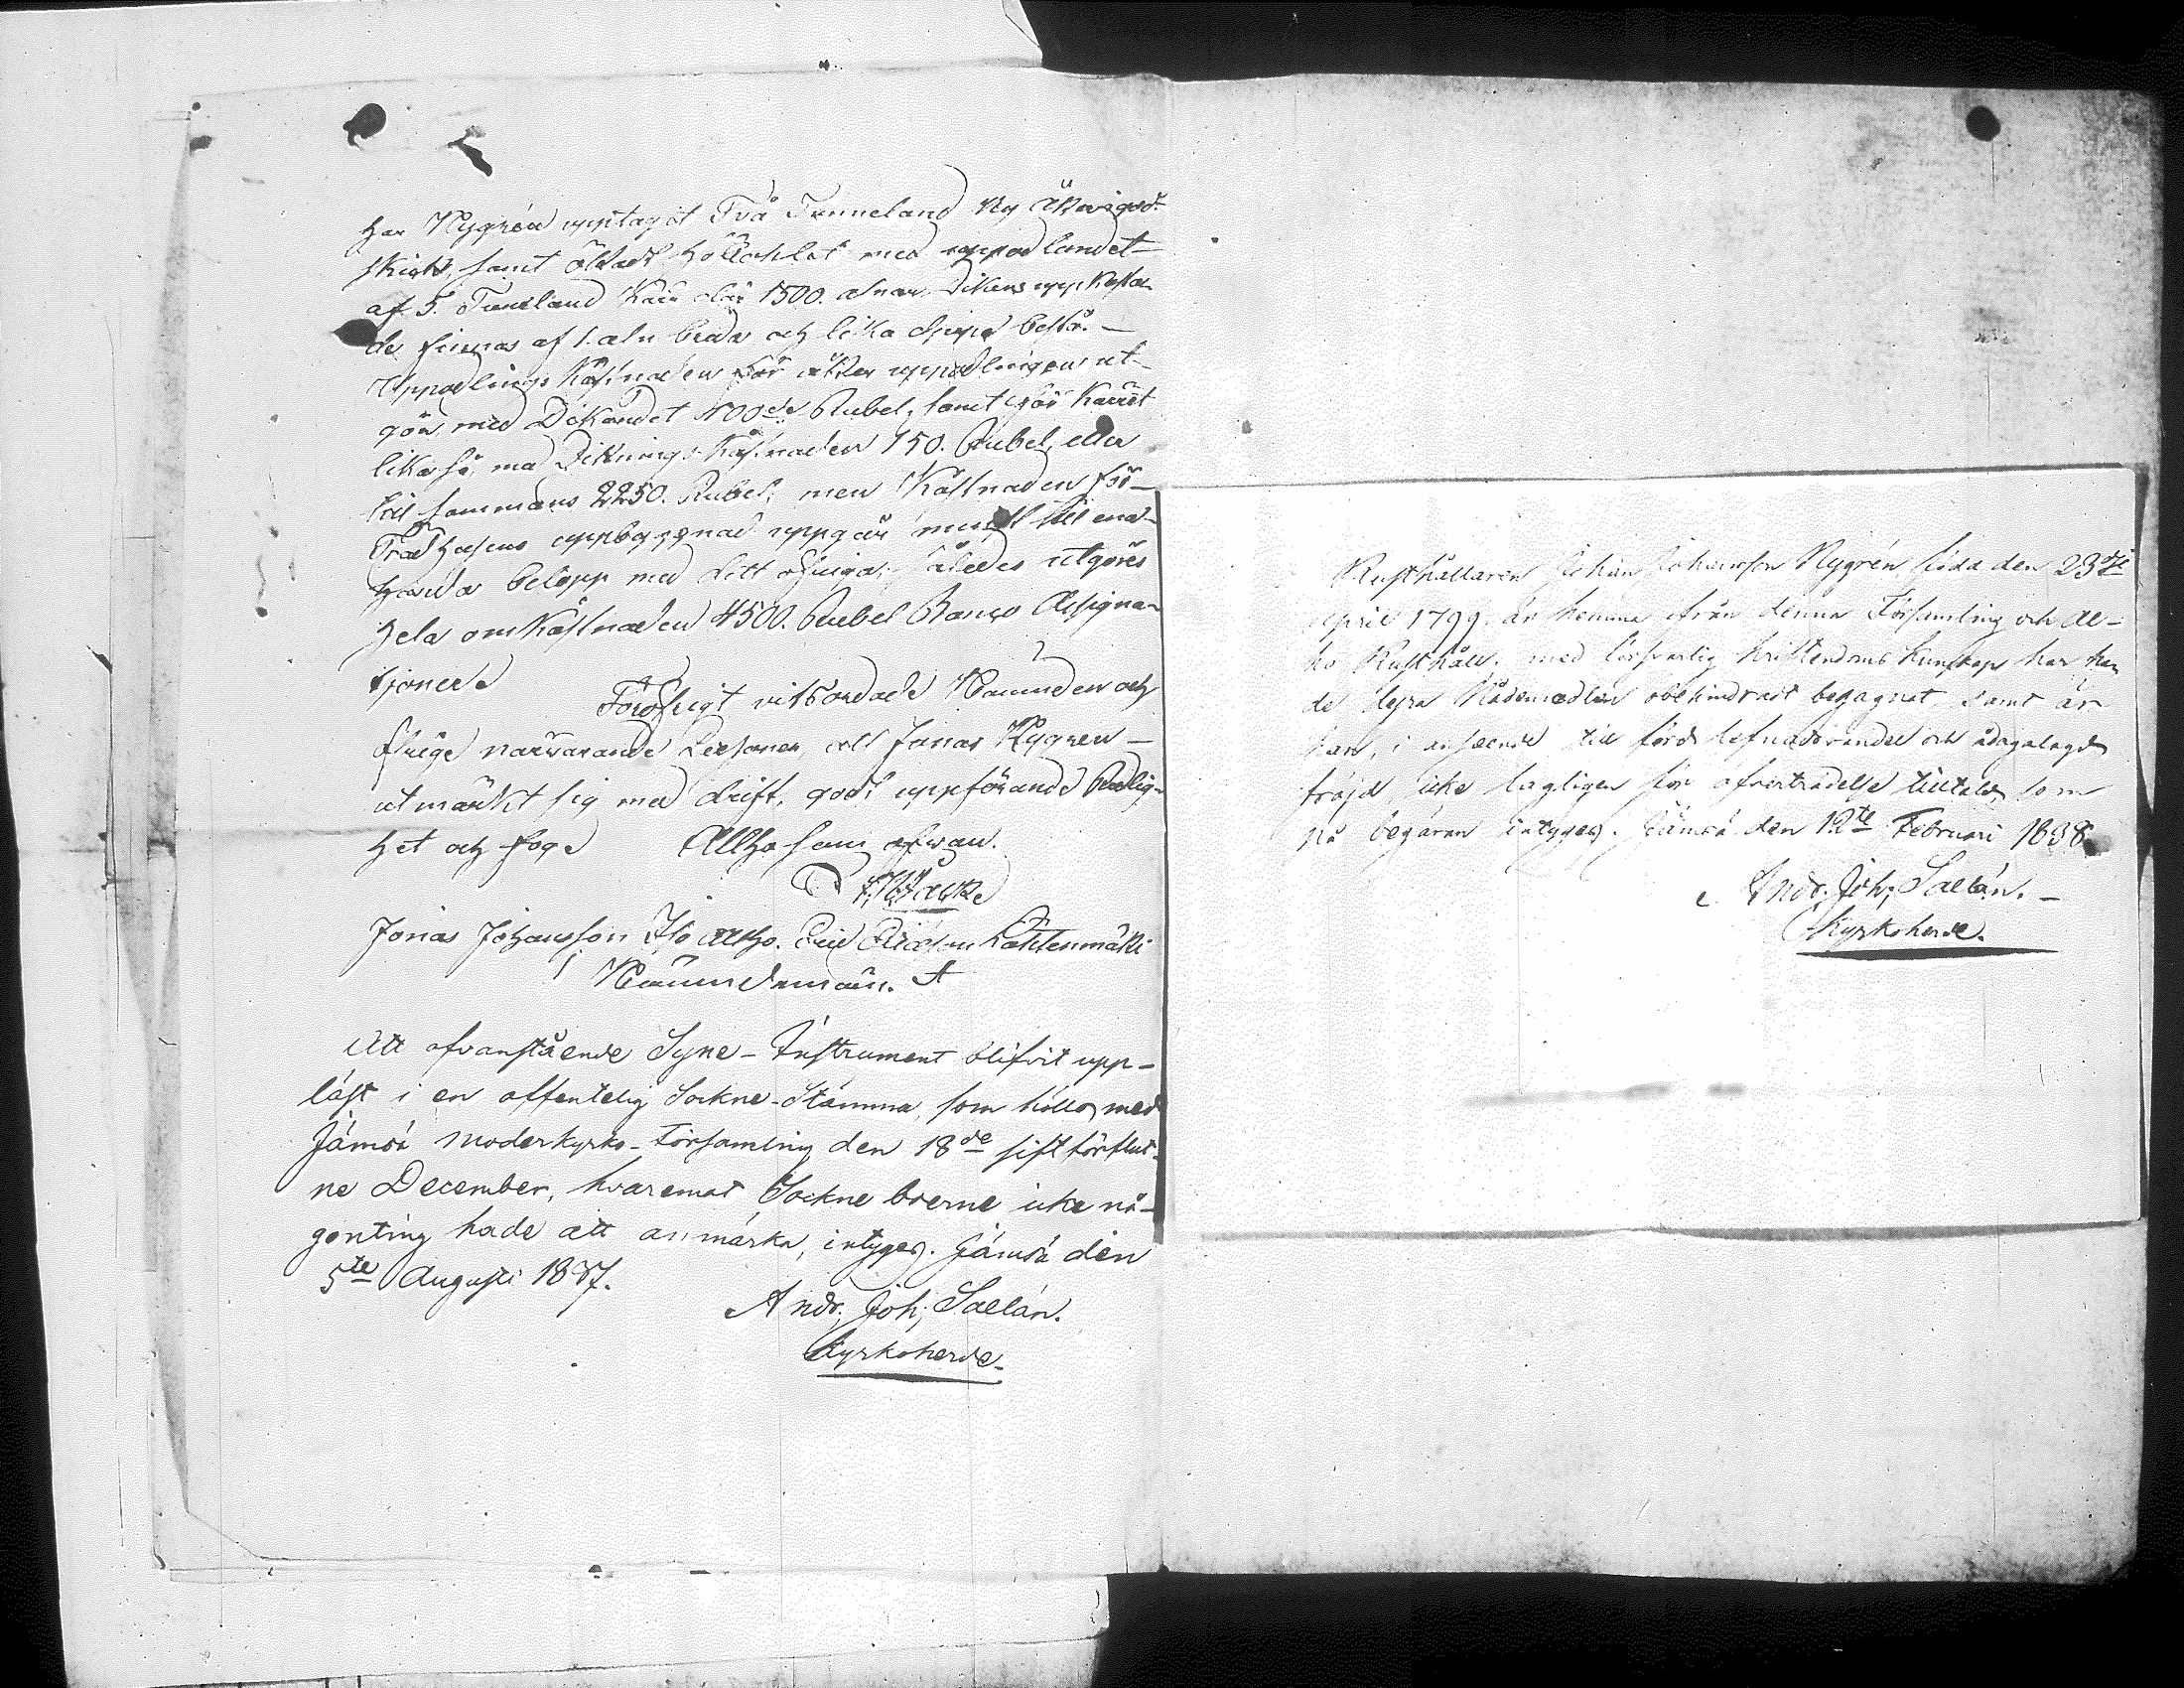 har Nygrén upptagit Två Tunneland Ny åker i godt
skick, samt ökadt höllaplat med uppodlandet
af 5. Tunneland Kärr där 1500. alnar Dikens uppkasta-
de finnas af 1. aln breda och lika djupa bestå.
Uppodlings Kåstnaden för åker uppodlingen ut-
gör, med Dikandet Rubel, samt för Kärret
likaså, med Diknings Kåstnaden 150. Rubel, eller
till sammans 2250. Rubel; men Kåstnaden för
Träd husens uppbyggnad uppgår med till ena-
handa belopp med ditt öfriga; således utgöres
hela omkåstnaden 4500. Rubel Banco Assigna-
tioner.
För öfrigt vitsordade Nämnden och
öfrige närvarande Personer, att Jonas Nygren
utmärkt sig med drift, godt uppförande Redlig-
het och foge Allho som ofvan.
Jonas Johansson Iso Allho. Eric Ericsson Lahtenmäki
Nämndemän.
Att ofvanstående Syne-Instrument blifvit upp-
läst i en offentelig Sockne-Stämma, som hölls med
Jämsä Moderkyrko-Församling den 18de sistförflut-
ne December, hvaremot Sockne boerne icke nå-
gonting hade att anmärka, intygas. Jämsä den
5te Augusti 1837.
Andr. Joh; Sallén.
Kyrkoherde.
Rusthållaren Johan Johansson Nygrén, född den 23dje
April 1799, är hemma ifrån denna Församling och Al-
ho Rusthåll. med försvarlig kristendoms kunskap har han
de dyra Nådemedlen obehindradt begagnat, samt är
han, i anseende till förd lefnadsvandel och ådagalagd
fräjd icke lagligen för öfverträdelse tilltalad, som
på begäran intygas. Jämsä den 12te Februari 1838.
Andr. Joh; Sallén.
Kyrkoherde.